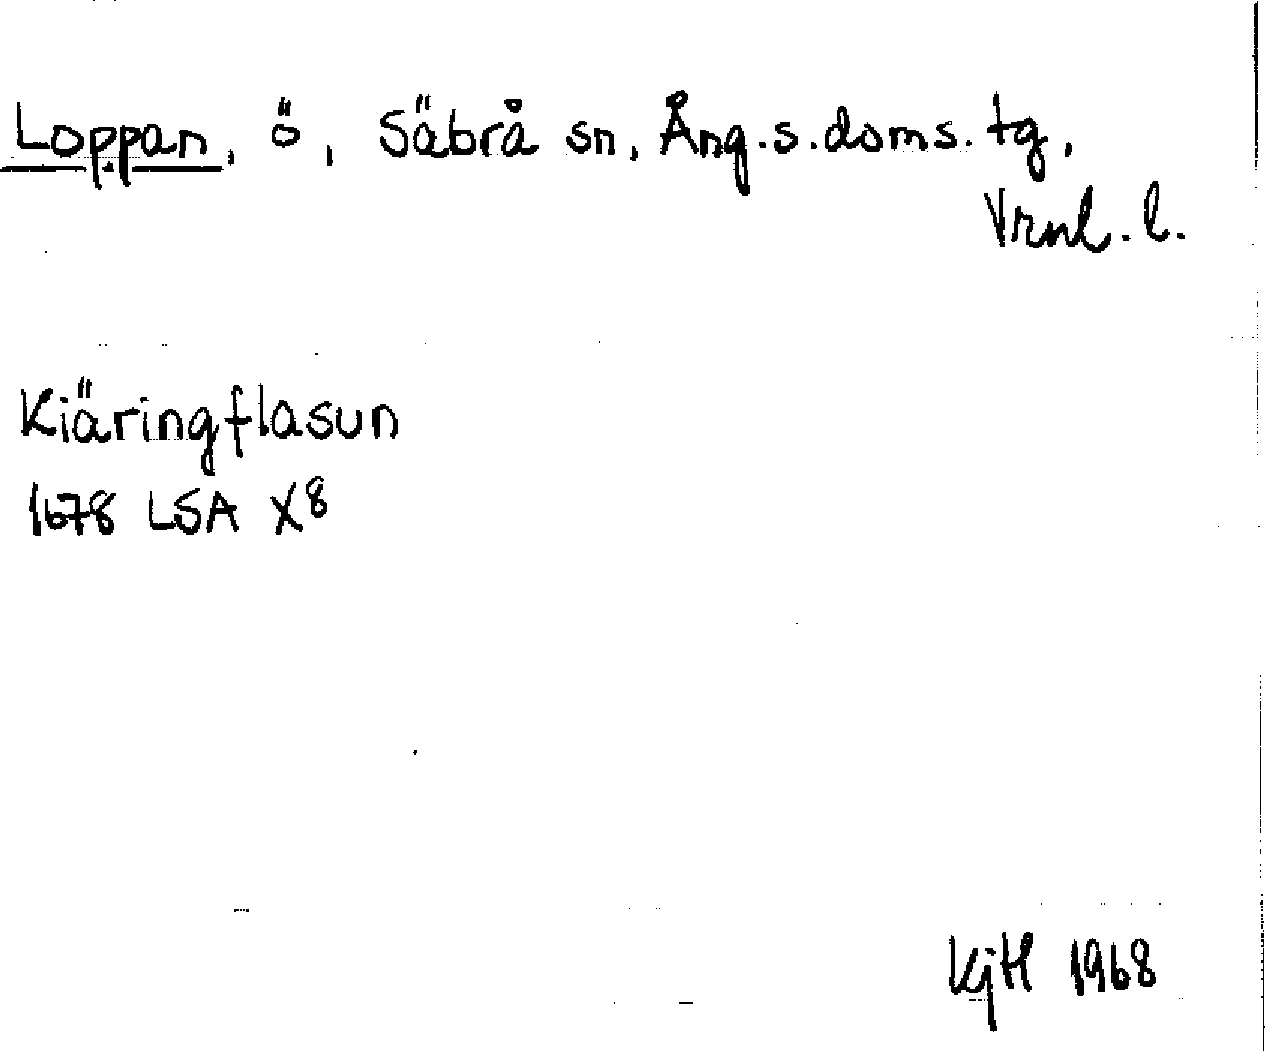 Loppan, ö, Säbrå sn, Ång.s.doms.tg,
Vrnl.l.
Kiäringflasun
1678 LSA X8
KjH 1968